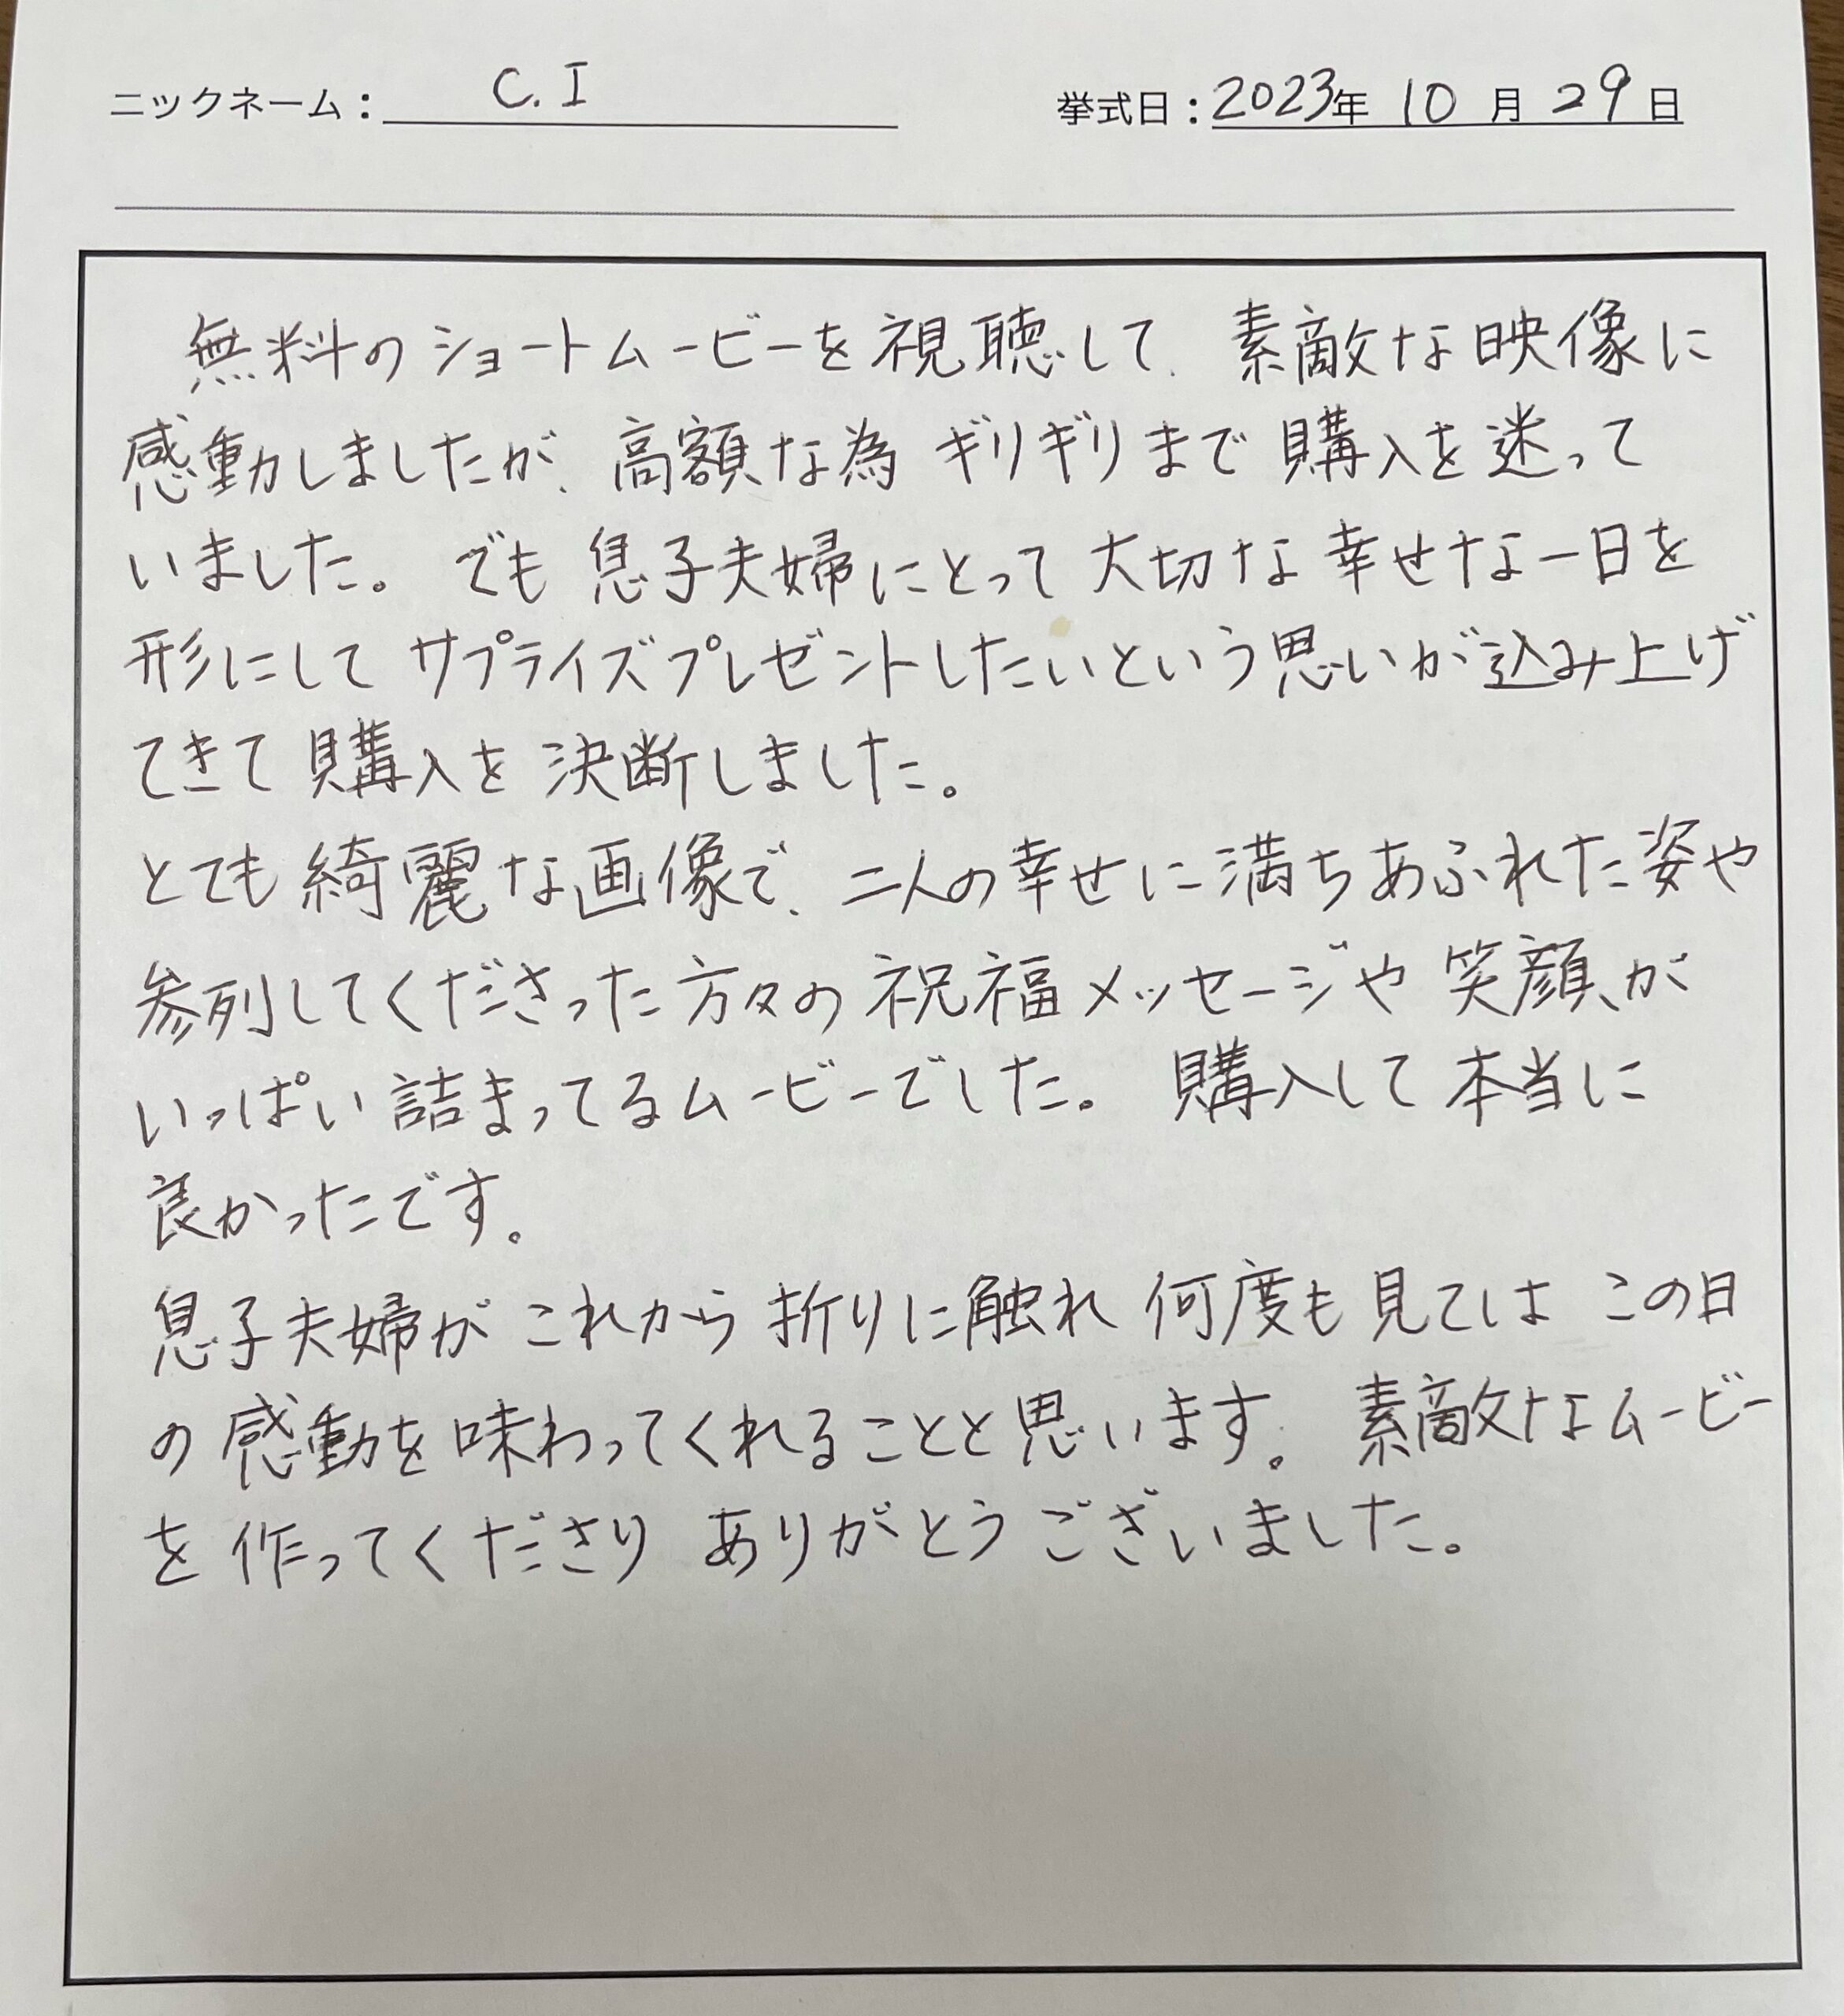 ニックネーム： C. I 挙式日：2023年 10 月 29 日
無料のショートムービーを視聴して、素敵な映像に
感動しましたが、高額な為 ギリギリまで購入を迷って
いました。でも息子夫婦にとって大切な幸せな一日を
形にして サプライズプレゼントしたいという思いが込み上げ
てきて購入を決断しました。
とても綺麗な画像で、二人の幸せに満ちあふれた姿や
参列してくださった方々の祝福メッセージや笑顔が
いっぱい詰まってるムービーでした。購入して本当に
良かったです。
息子夫婦がこれから折りに触れ 何度も見ては この日
の感動を味わってくれることと思います。素敵なムービー
を作ってくださり ありがとうございました。